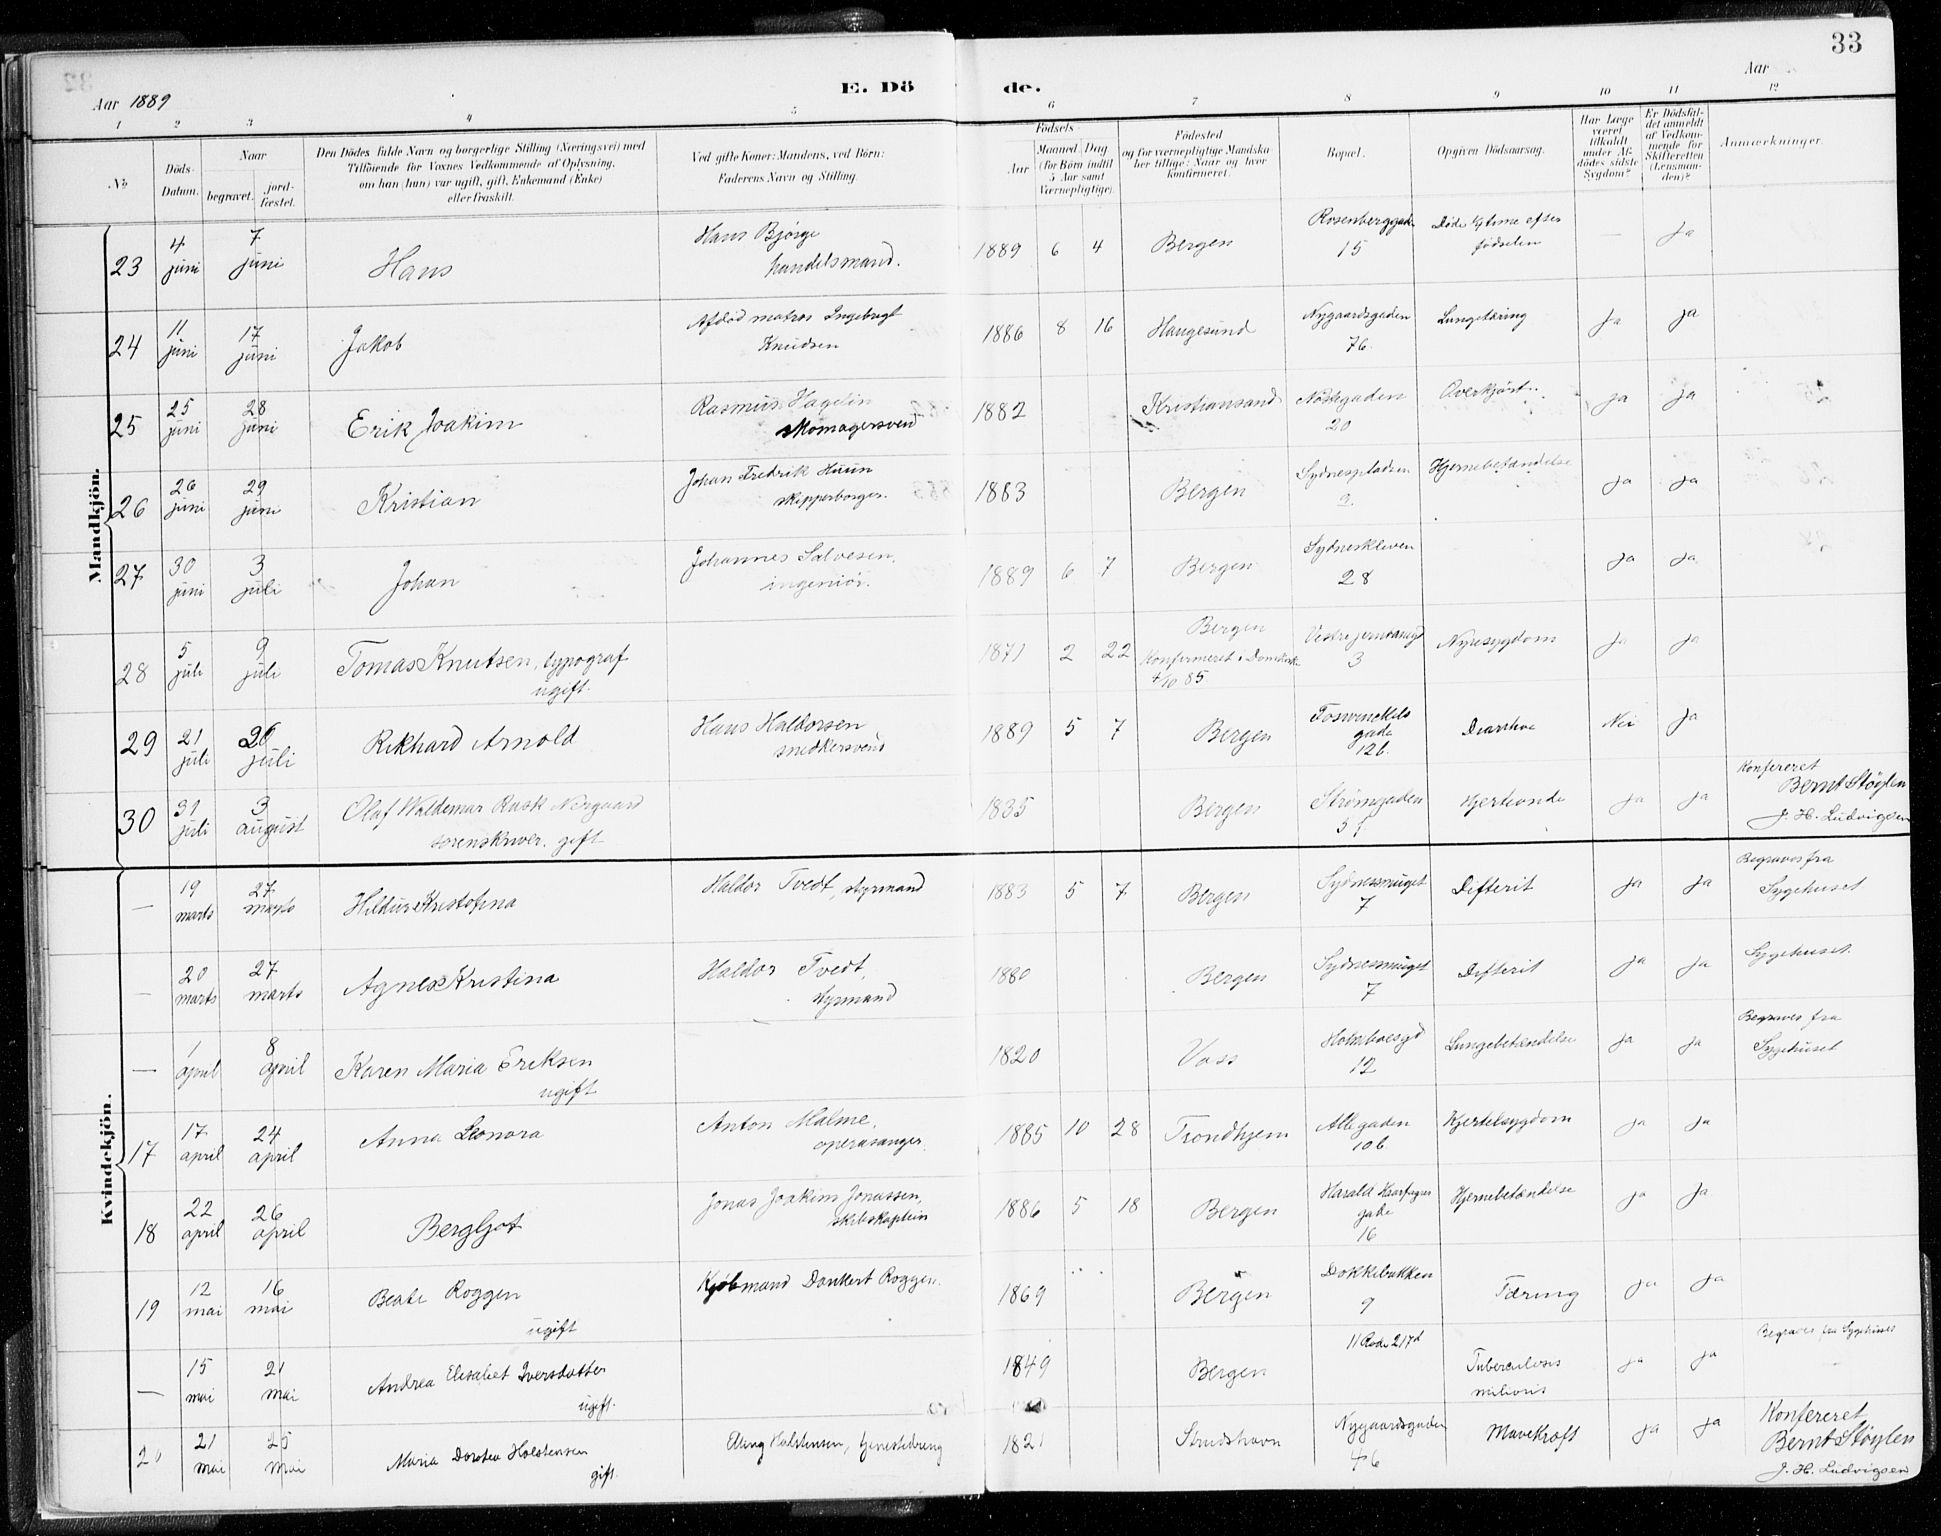 33
Aar 1889
E. Dö de.
Aar
1 2 3 4 5 6 7 8 9 10 11 12
No
Döds-
Datum.
Naar
begravet.
jord-
fæstet.
Den Dödes fulde Navn og borgerlige Stilling (Næringsvei) med
Tilföiende for Voxnes Vedkommende af Oplysning,
om han (hun) var ugift, gift, Enkemand (Enke)
eller fraskilt.
Ved gifte Koner: Mandens, ved Börn:
Faderens Navn og Stilling.
Födsels-
Aar
Maaned Dag
(for Börn indtil
5 Aar samt
Værnepligtige).
Födested
og for værnepligtige Mandska-
ber tillige: Naar og hvor
konfirmeret.
Bopæl.
Opgiven Dödsaarsag.
Har Læge
været
tilkaldt
under Af-
dödes sidste
Sygdom?
Er Dödsfal-
det anmeldt
af Vedkom-
mende for
Skifteretten
(Lensman-
den)?
Anmærkninger.
Mandkjön.
23 4 juni 7 juni Hans Hans Bjørge handelsmand. 1889 6 4 Bergen Rosenberggade 15 Døde efter fødselen — ja
24 11 juni 17 juni Jakob Afdød matros Ingebrigt Knudsen 1886 8 16 Haugesund Nygaardsgaden 76 Lungetæring ja ja
25 25 juni 28 juni Erik Joakim Rasmus Hagelin skomagersvend 1882 Kristiansand Nøstegaden 20 Overkjørt ja ja
26 26 juni 29 juni Kristian Johan Fredrik Huun skipperborger. 1883 Bergen Sydnespladsen 3. Hjernebetændelse ja ja
27 30 juni 3 juli Johan Johannes Salvesen, ingeniør. 1889 6 7 Bergen Sydneskleven 28 ja ja
28 5 juli 9 juli Tomas Knutsen, typograf ugift. 1871 2 22 Bergen Konfirmeret i Domkirk 4/10 85. Vestre 3 Nyresygdom ja ja
29 21 juli 26 juli Rikhard Arnold Hans Haldorsen snedkersvend 1889 5 7 Bergen Foswinckels gade 12b. Diarrhoe Nei ja
30 31 juli 3 august Olaf Waldemar Rusk Norgaard sorenskriver. gift 1835 Bergen Strømgaden 51 Hjerteonde ja ja Konfereret Bernt Støylen J. H. Ludvigsen
Kvindekjön.
— 19 marts 27 marts Hildur Kristofina Haldor Tvedt, styrmand 1883 5 7 Bergen Sydnessmuget 7 Difterit ja ja Begraves fra Sygehuset
— 20 marts 27 marts Agnes Kristina Haldor Tvedt, styrmand 1880 Bergen Sydnessmuget 7 Difterit ja ja Sygehuset.
— 1 april 8 april Karen Maria Eriksen ugift 1820 Voss Holmboesgd 12 Lungebetændelse ja ja Begraves fra Sygehuset
17 17 april 24 april Anna Leonora Anton Malme, operasanger. 1885 10 28 Trondhjem Allegaden 10b Kjertelsygdom ja ja
18 22 april 26 april Bergljot Jonas Joakim Jonassen, skibskaptein 1886 5 18 Bergen Harald Haarfagres gade 16 Hjernebetændelse ja ja
19 12 mai 16 mai Beate Roggen ugift Kjøbmand Dankert Roggen. 1869 Bergen Dokkebakken 9 Tæring ja ja
— 15 mai 21 mai Andrea Elisabet Iversdatter ugift. 1849 Bergen 11 Rode 217d Tuberculosis miliaris ja ja Begraves fra Sygehuset
20 21 mai 25 mai Maria Dorotea Holstensen gift. Elling Holstensen, tjenestedreng 1821 Strudshavn Nygaardsgaden 46 Mavekræft ja ja Konfereret Bernt Støylen J. H. Ludvigsen